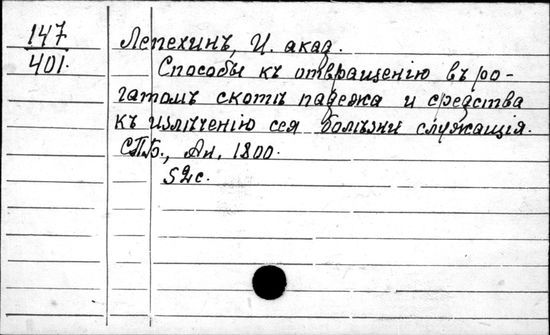 147
401.
Лепехинъ, И. акад.
Способы къ отвращенію въ ро-
гатомъ скотѣ падежа и средства
къ излѣченію сея болѣзни служащія.
СПБ., Ан, 1800.
52с.